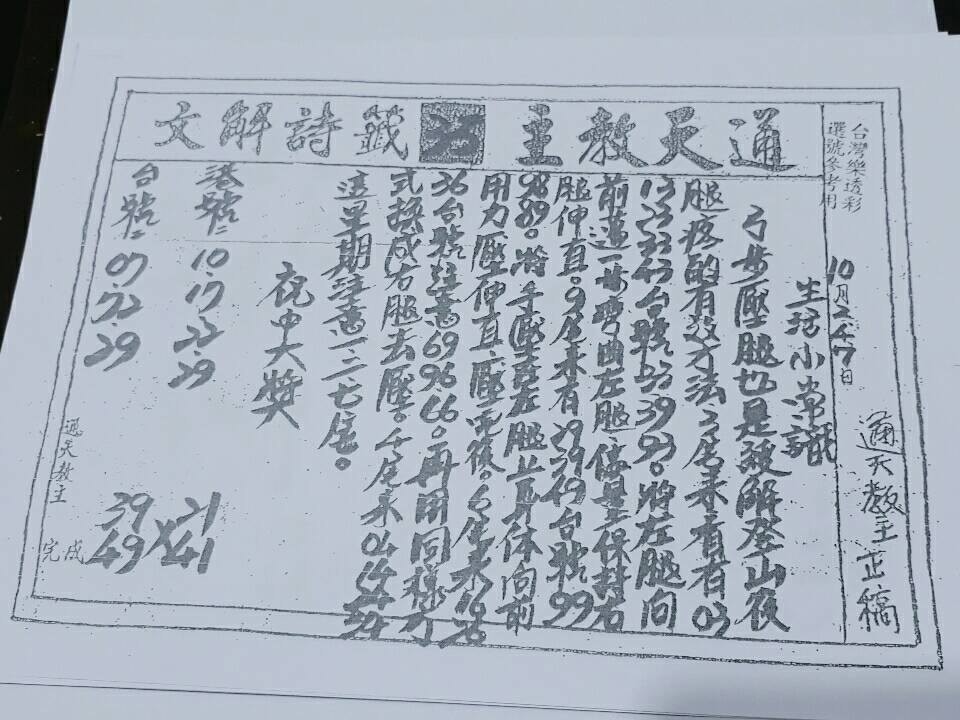 通天教主
籤詩解文
台灣樂透彩
選號參考用
10月27日
通天教主正稿
生活小常識
弓步壓腿也是緩解登山後
腿疼的有效方法3尾來看有03
13 23 33 43台號53 39 93。將左腿向
前邁一步彎曲左腿儘量保持右
腿伸直。9尾來有29 39 49台號99
98 89。將手壓在左腿上身体向前
用力壓伸直
6尾來16 26
36台號注意69 96 66。再用同樣方
式換成右腿去壓。4尾來04 14 34
這星期注意一二七尾。
祝中大獎
港號:10.17.22.29
台號:07.72.29
21
41
X
39
49
通天教主
完成